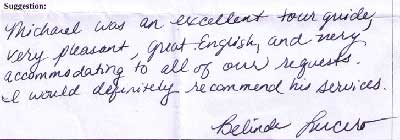 Suggestion:
Michael was an excellent tour guide,
very pleasant, great English, and very
accommodating to all of our requests.
I would definitely recommend his services.
Belinda Lucero